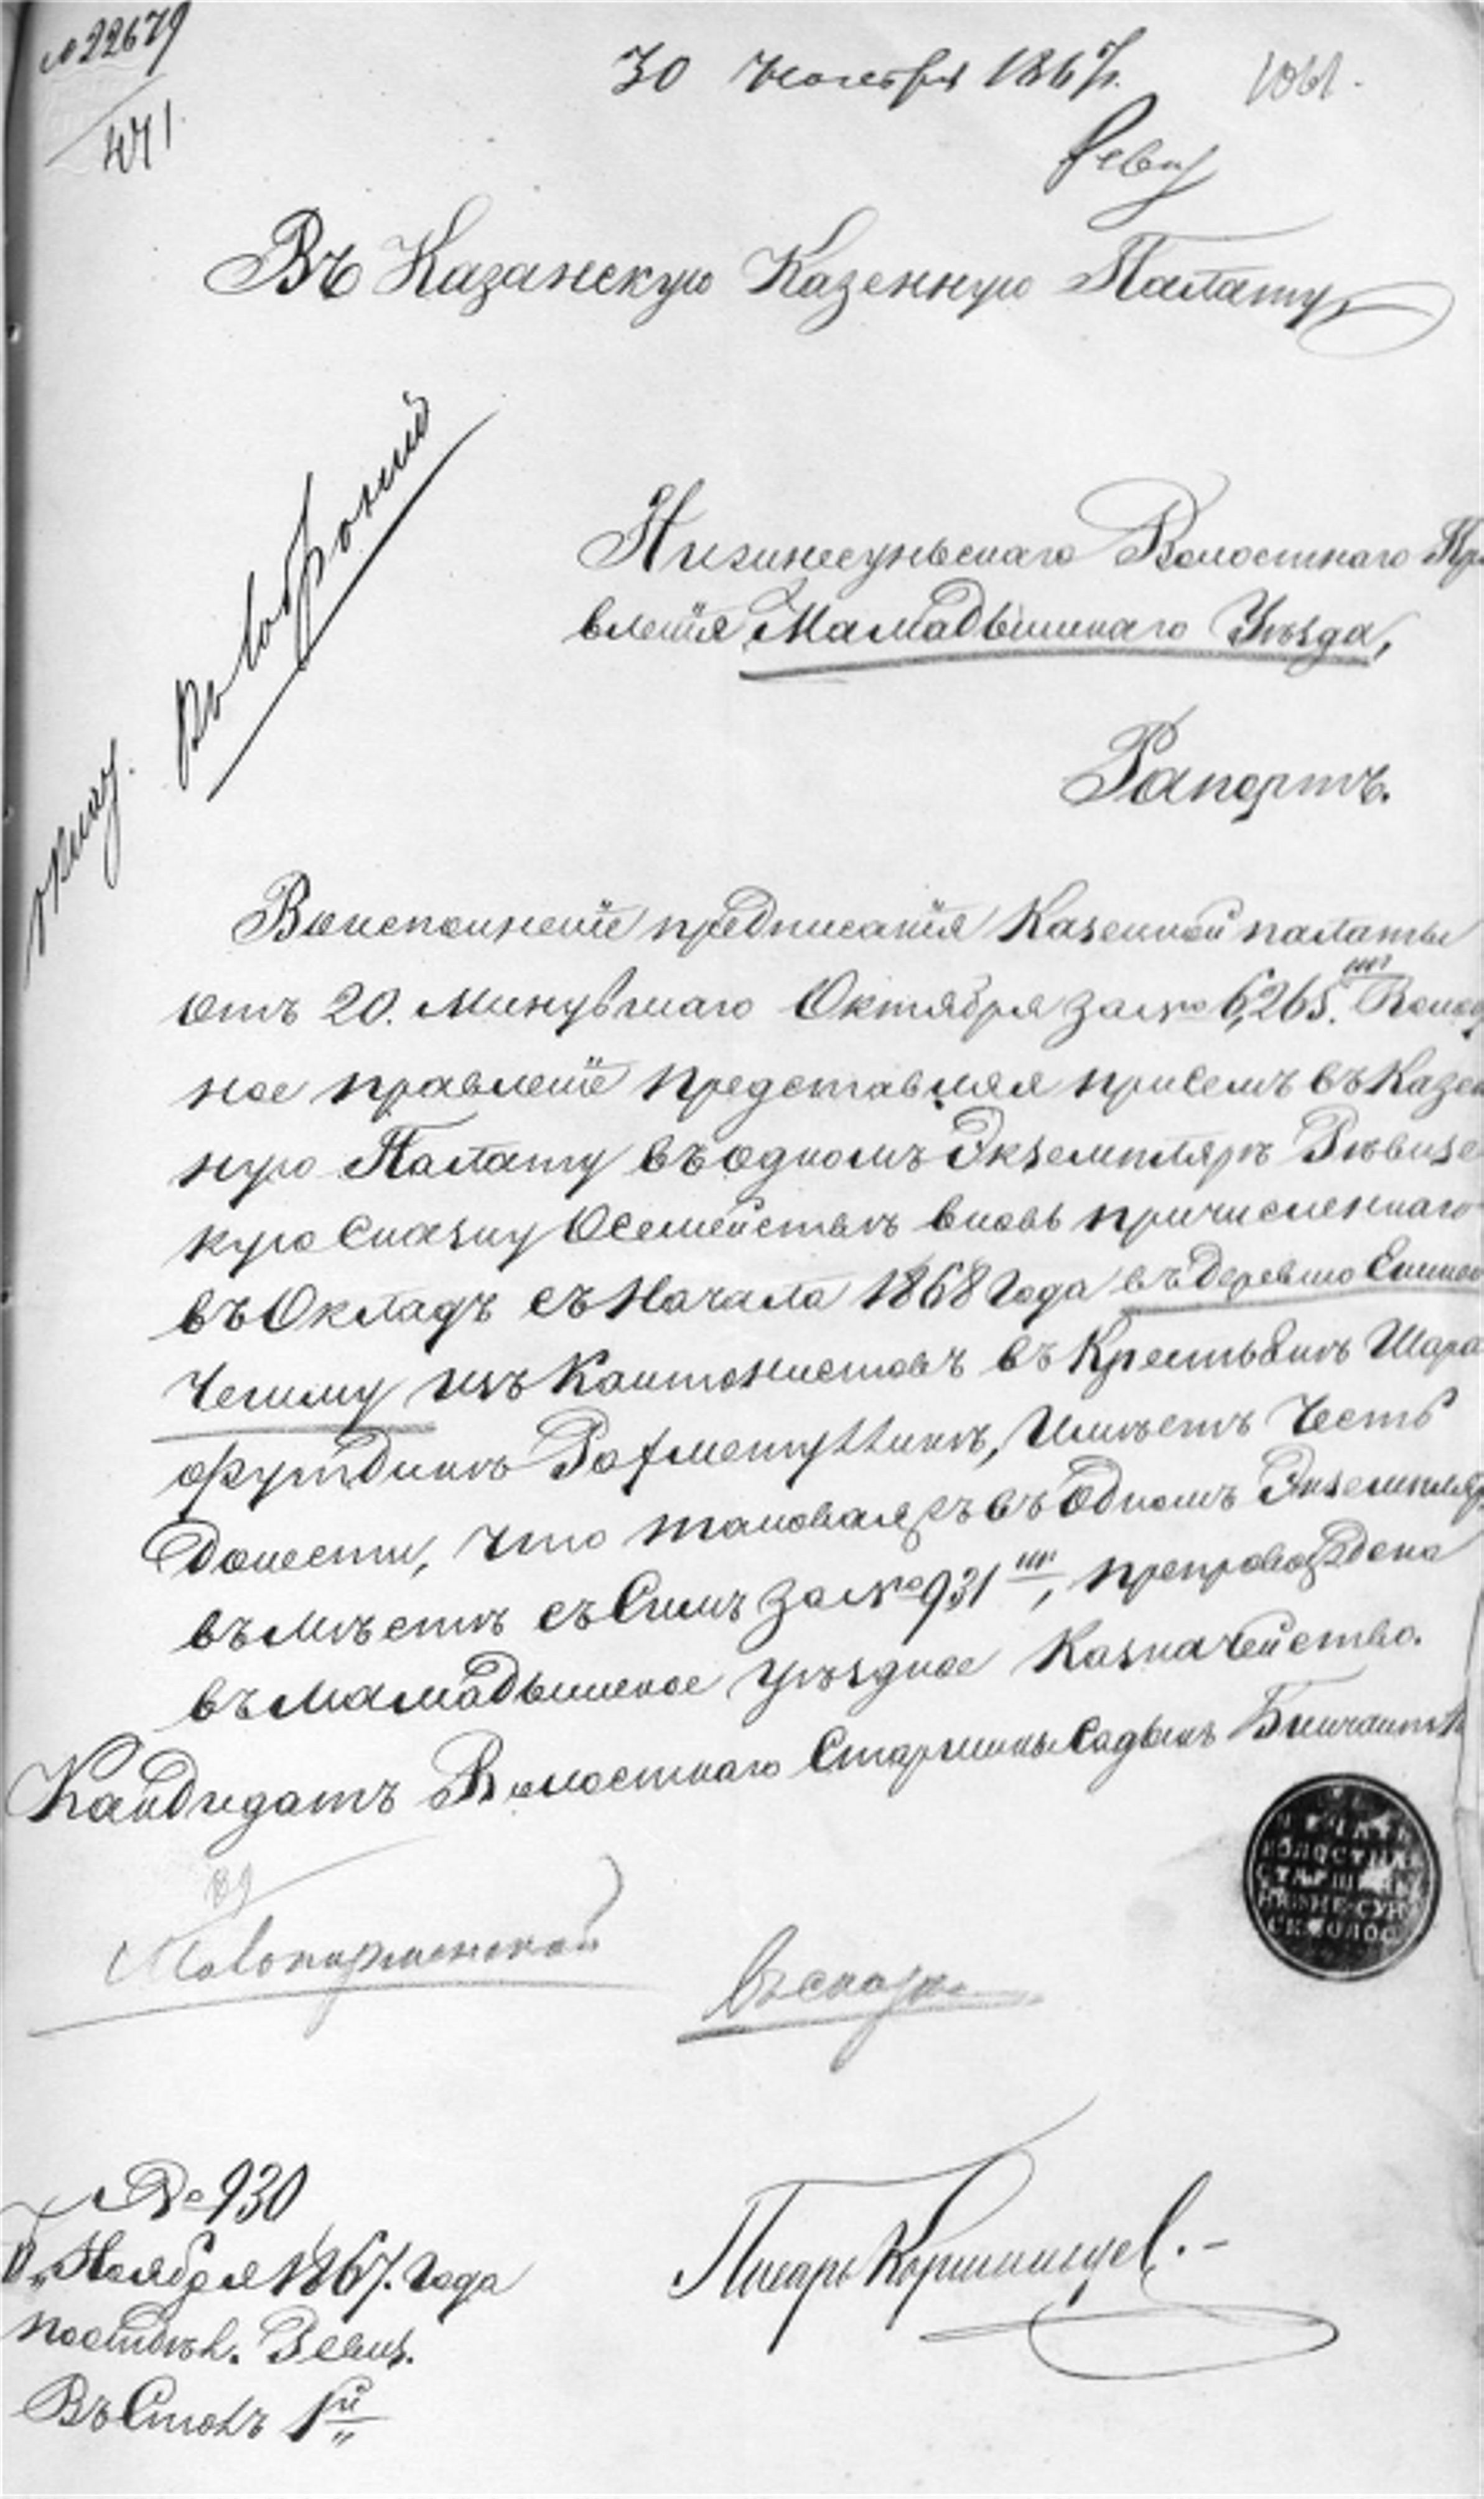 № 22679
471.
30 Ноября 1867 г.
1061.
Реви
Въ Казанскую Казенную Палату
Нижнесуньскаго Волостнаго Пра
вленiя Мамадышскаго Уѣзда,
Рапортъ.
Воисполненiе предписанiя Казенной палаты
отъ 20. Минувшаго Октября за № 6,265. Волост
ное правленiе представляя присемъ въ Казен
ную Палату въ одномъ Экземплярѣ Рѣвизс
кую Сказку Осемействѣ вновь причисленнаго
въ Окладъ съ Начала 1868 Года въ деревню
Чешму изъ Кантонистовъ въ Крестьянъ Шара
футдинъ Рахметуллинъ, Имѣетъ Честь
Донести, что таковаяжъ въ Одномъ Экземпляр
въмѣстѣ съ Симъ за № 931 мъ, препровождена
въ Мамадышское уѣздное Казначейство.
Кандидатъ Волостнаго Старшины Садыкъ
ПЕЧАТЬ
ВОЛОСТНАГ
СТАРШИНЫ
НИЖНЕ-СУН
СК. ВОЛОС
въ сказк
№ 930
Ноября 1867. Года
по отдѣл. Ревиз.
Въ Столъ 1й
Писарь